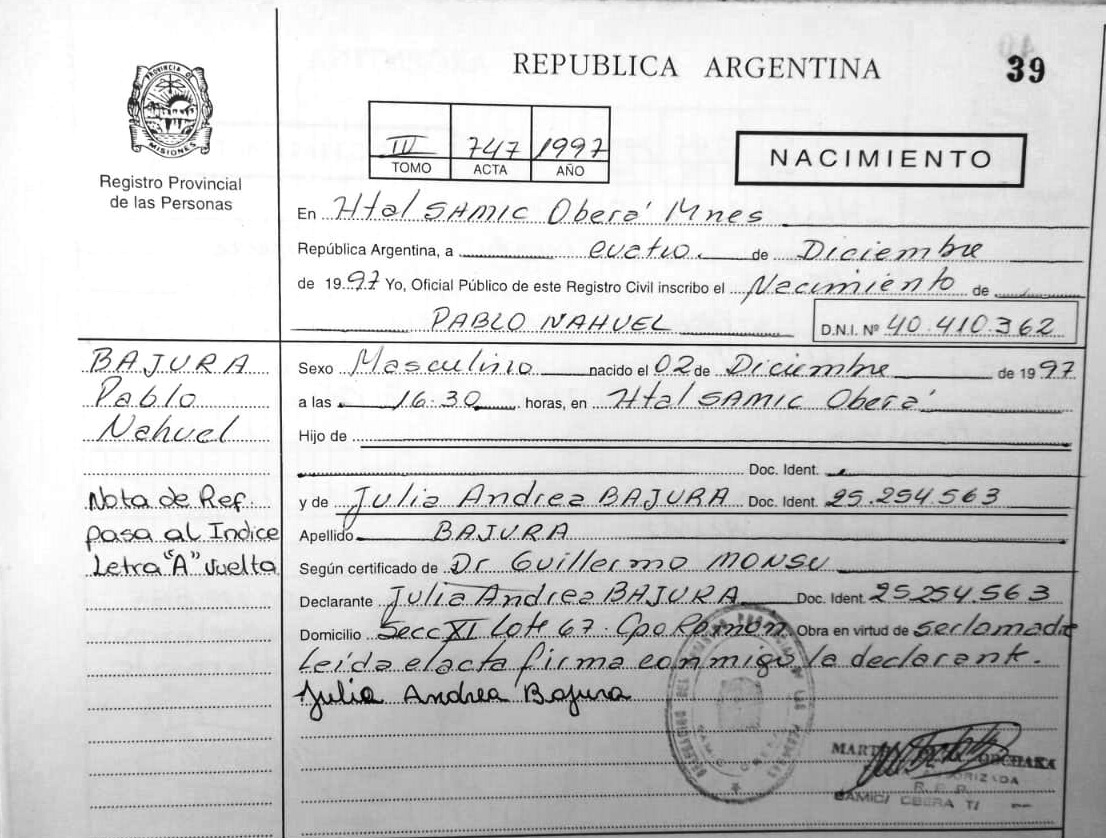 REPUBLICA ARGENTINA
39
PROVINCIA DE
MISIONES
Registro Provincial
de las Personas
III 747 1997
TOMO ACTA AÑO
NACIMIENTO
En Htal SAMIC Oberá Mnes
República Argentina, a cuatro. de Diciembre
de 1997 Yo, Oficial Público de este Registro Civil inscribo el Nacimiento de
PABLO NAHUEL D.N.I. Nº 40.410.362
BAJURA
Pablo
Nahuel
Nota de Ref.
pasa al Indice
Letra "A" vuelta
Sexo Masculino nacido el 02 de Diciembre de 1997
a las 16.30 horas, en Htal SAMIC Oberá
Hijo de
Doc. Ident.
y de Julia Andrea BAJURA Doc. Ident. 25.254.563
Apellido BAJURA
Según certificado de Dr Guillermo MONSU
Declarante Julia Andrea BAJURA Doc. Ident. 25254.563
Domicilio Secc XI Lote 67. Cpo Ramón Obra en virtud de ser la madre
Leída el acta firma conmigo la declarante.
Julia Andrea Bajura
SAMIC OBERA